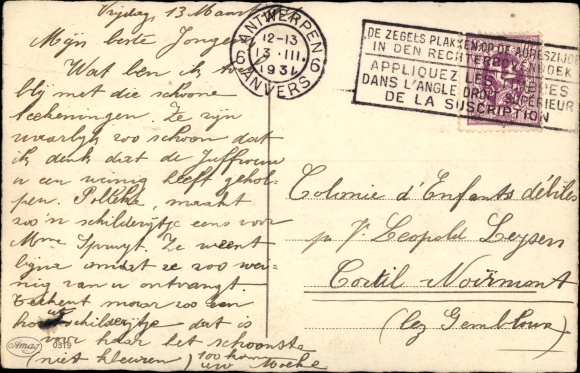 Vrijdag, 13 Maart
Mijn beste Jongen
Wat ben ik toch
blij met die schoone
teekeningen. Ze zijn
waarlijk zoo schoon dat
ik denk dat de Juffrouw
u een weinig heeft gehol-
pen. Polleke, maakt
zoo'n schilderijtje eens voor
Mme Spruyt. Ze weent
bijna omdat ze zoo wei-
nig van u ontvangt.
Teekent maar zoo een
schilderijtje dat is
voor haar het schoonste
(niet kleuren) 100 kussen
uw Moeke
Amag 0319
ANTWERPEN
6 12-13 6
13·III.
1931
ANVERS
DE ZEGELS PLAKKEN OP DE ADRESZIJDE
IN DEN RECHTERBOVENHOEK
APPLIQUEZ LES TIMBRES
DANS L'ANGLE DROIT SUPERIEUR
DE LA SUSCRIPTION
Colonie d'Enfants débiles
Leopold Leysen
Cortil Noirmont
(lez Gembloux)